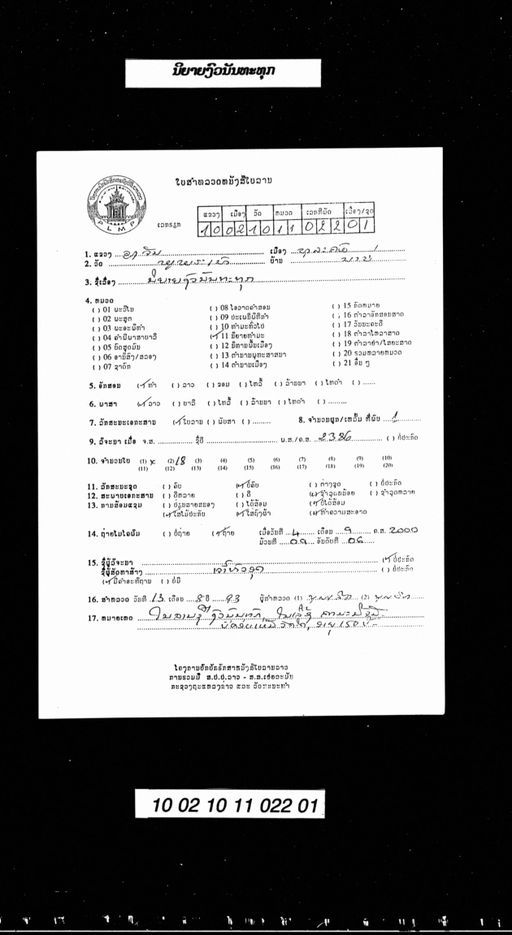 ນິຍາຍງົວນັນທະທຸກ
ໃບສຳຫລວດຫນັງສືໃບລານ
PLMP
ແຂວງ ເມືອງ ວັດ ຫມວດ ເລກທີມັດ ເລື່ອງ/ຊຸດ
ເລກຣຫັດ 1 0 0 2 1 0 1 1 0 2 2 0 1
1. ແຂວງ ເມືອງ
2. ວັດ ບ້ານ
3. ຊື່ເລື່ອງ ນິຍາຍງົວນັນທະທຸກ
4. ຫມວດ
( ) 01 ພະວິໄນ ( ) 08 ໂອວາດຄຳສອນ ( ) 15 ກົດຫມາຍ
( ) 02 ພະສູດ ( ) 09 ປະເພນີພິທີກຳ ( ) 16 ຕຳລາອັກສອນສາດ
( ) 03 ພະອະພິທຳ ( ) 10 ທຳມະທົ່ວໄປ ( ) 17 ວັນນະຄະດີ
( ) 04 ຄຳພີພາສາບາລີ (✓) 11 ນິຍາຍທຳມະ ( ) 18 ຕຳລາໂຫລາສາດ
( ) 05 ບົດສູດມົນ ( ) 12 ນິທານພື້ນເມືອງ ( ) 19 ຕຳລາຢາ/ໄສຍະສາດ
( ) 06 ອານິສົງ/ສລອງ ( ) 13 ຕຳນານພຸທະສາສນາ ( ) 20 ລວມຫລາຍຫມວດ
( ) 07 ຊາດົກ ( ) 14 ຕຳນານເມືອງ ( ) 21 ອື່ນ ໆ
5. ອັກສອນ (✓) ທຳ ( ) ລາວ ( ) ຂອມ ( ) ໄທລື້ ( ) ລ້ານນາ ( ) ໄທດຳ ( )
6. ພາສາ (✓) ລາວ ( ) ບາລີ ( ) ໄທລື້ ( ) ລ້ານນາ ( ) ໄທດຳ ( )
7. ລັກສະນະເອກະສານ (✓) ໃບລານ ( ) ພັບສາ ( ) 8. ຈຳນວນຜູກ/ເຫລັ້ມ ທີ່ພົບ 1
9. ວັດຈະນາ ເມື່ອ ຈ.ສ. ຊື່ປີ ພ.ສ./ຄ.ສ. 2386 ( ) ບໍ່ປະກົດ
10. ຈຳນວນໃບ (1) x (2) 18 (3) (4) (5) (6) (7) (8) (9) (10)
(11) (12) (13) (14) (15) (16) (17) (18) (19) (20)
11. ລັກສະນະຊຸດ ( ) ຄົບ (✓) ບໍ່ຄົບ ( ) ຕ່າງຊຸດ ( ) ບໍ່ປະກົດ
12. ສະພາບເອກະສານ ( ) ດີຫລາຍ ( ) ດີ (✓) ຊຳລຸດໜ້ອຍ ( ) ຊຳລຸດຫລາຍ
13. ການສ້ອມແຊມ ( ) ປ່ຽນສາຍສະນອງ ( ) ໄດ້ສ້ອມ (✓) ບໍ່ໄດ້ສ້ອມ
(✓) ໃສ່ໄມ້ປະກັບ (✓) ໃສ່ຖົງຜ້າ (✓) ທຳຄວາມສະອາດ
14. ຖ່າຍໄມໂຄຟິມ ( ) ບໍ່ຖ່າຍ (✓) ຖ່າຍ ເມື່ອວັນທີ 4 ເດືອນ 9 ຄ.ສ 2000
ມ້ວນທີ 09 ອັນດັບທີ 06
15. ຊື່ຜູ້ວັດຈະນາ (✓) ບໍ່ປະກົດ
ຊື່ຜູ້ສັດທາສ້າງ ( ) ບໍ່ປະກົດ
(✓) ມີຄຳອະທິຖານ ( ) ບໍ່ມີ
16. ສຳຫລວດ ວັນທີ 13 ເດືອນ 8 ປີ 93 ຜູ້ສຳຫລວດ (1) (2)
17. ຫມາຍເຫດ
ໂຄງການປົກປັກຮັກສາຫນັງສືໃບລານລາວ
ການຮ່ວມມື ສ.ປ.ປ.ລາວ - ສ.ສ.ເຢຍລະມັນ
ກະຊວງຖແຫລງຂ່າວ ແລະ ວັດທະນະທຳ
10 02 10 11 022 01